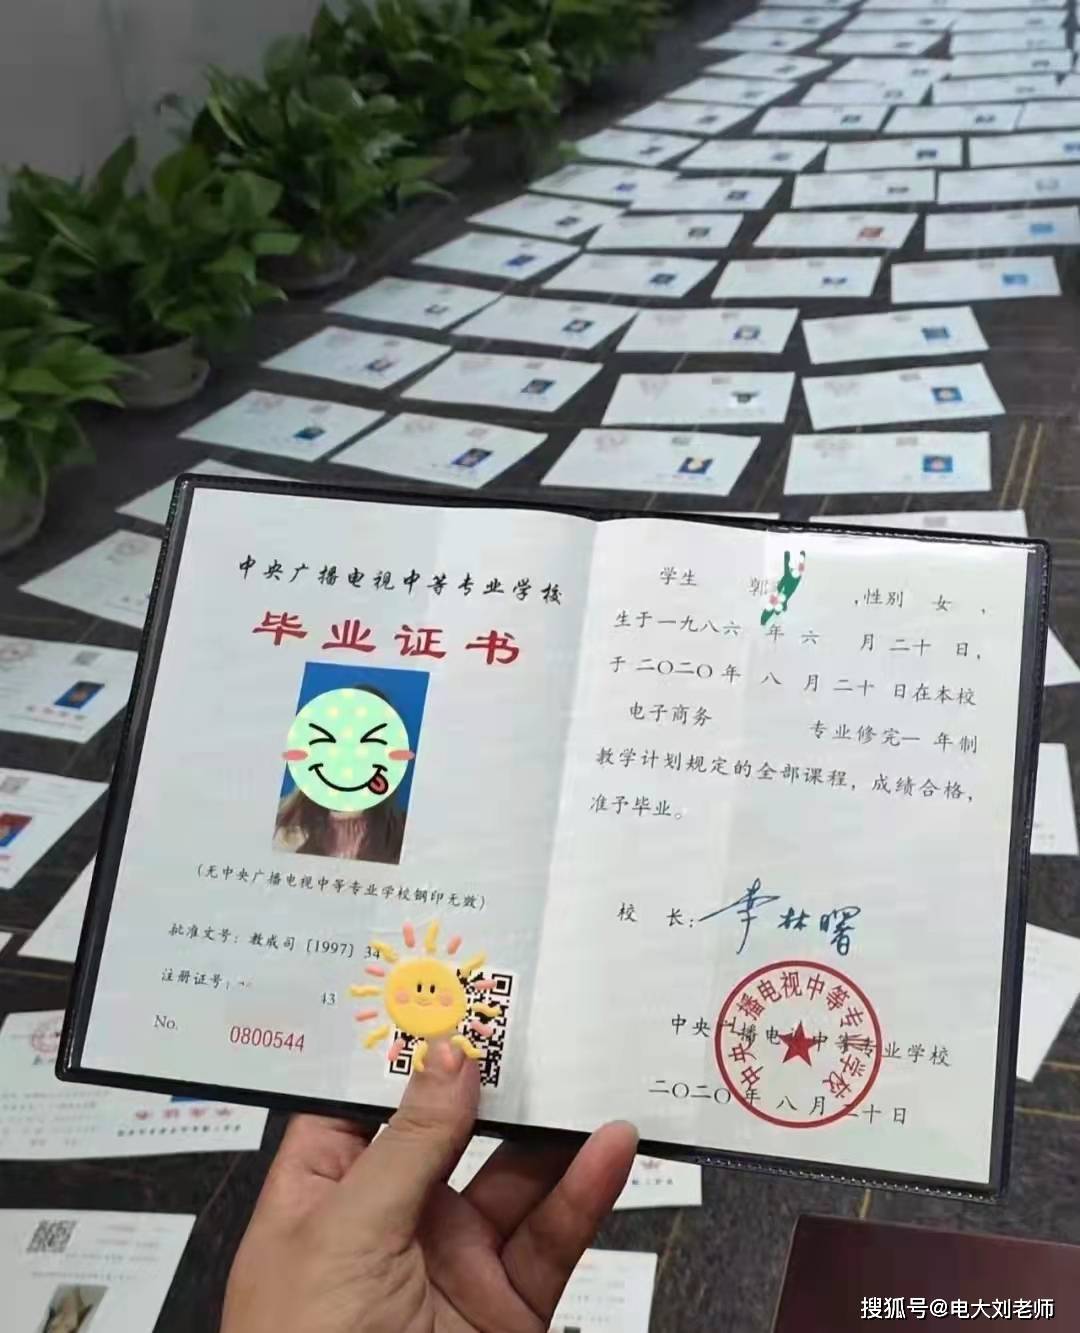 中央广播电视中等专业学校
毕业证书
(无中央广播电视中等专业学校钢印无效)
批准文号：教成司［1997］34
注册证号：
43
No. 0800544
学生 郭 ,性别 女 ,
生于一九八六 年 六 月 二十 日,
于 二〇二〇 年 八 月 二十 日在本校
电子商务 专业修完一 年制
教学计划规定的全部课程，成绩合格，
准予毕业。
校 长： 李林曙
中央广播电视中等专业学校
二〇二〇 年 八 月 二十 日
中央广播电视中等专业学校
搜狐号@电大刘老师